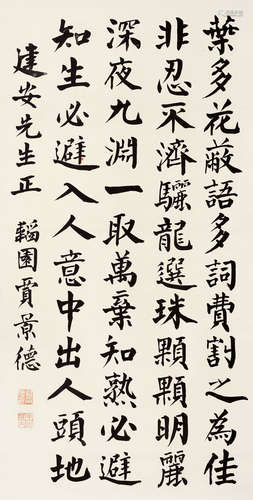 葉多花蔽語多詞費割之為佳
非忍不濟驪龍選珠顆顆明麗
深夜九淵一取萬棄知熟必避
知生必避入人意中出人頭地
建安先生正 韜園賈景德